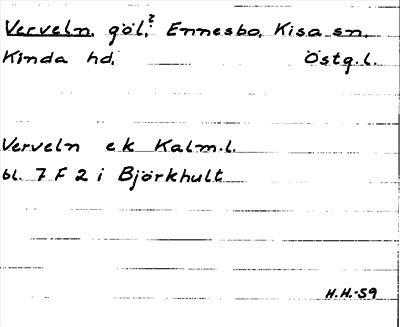 Verveln, göl,? Ennesbo, Kisa sn,
Kinda hd, Östg.l.
Verveln ek Kalm.l.
bl. 7 F 2 i Björkhult
H.H.-59